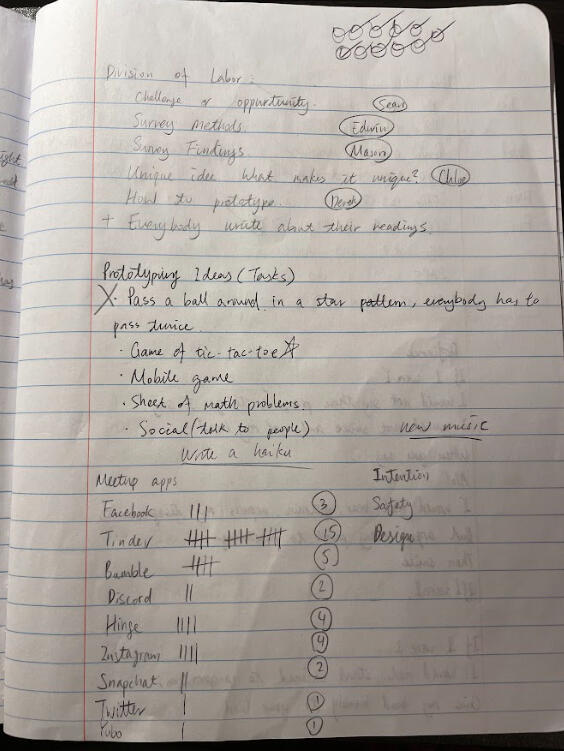 Division of Labor:
Challenge or oppurtunity. Sean
Survey methods. Edwin
Survey Findings Mason
Unique idea What makes it unique? Chloe
How to prototype. Derek
+ Everybody write about their readings.
Prototyping Ideas (Tasks)
X · Pass a ball around in a star pattern, everybody has to
pass twice.
· Game of tic-tac-toe
· Mobile game
· Sheet of math problems.
· Social (talk to people) new music
Write a haiku
Meetup apps Intention
Facebook ||| 3 Safety
Tinder 15 Design
Bumble 5
Discord || 2
Hinge |||| 4
Instagram |||| 4
Snapchat || 2
Twitter | 1
Yubo | 1